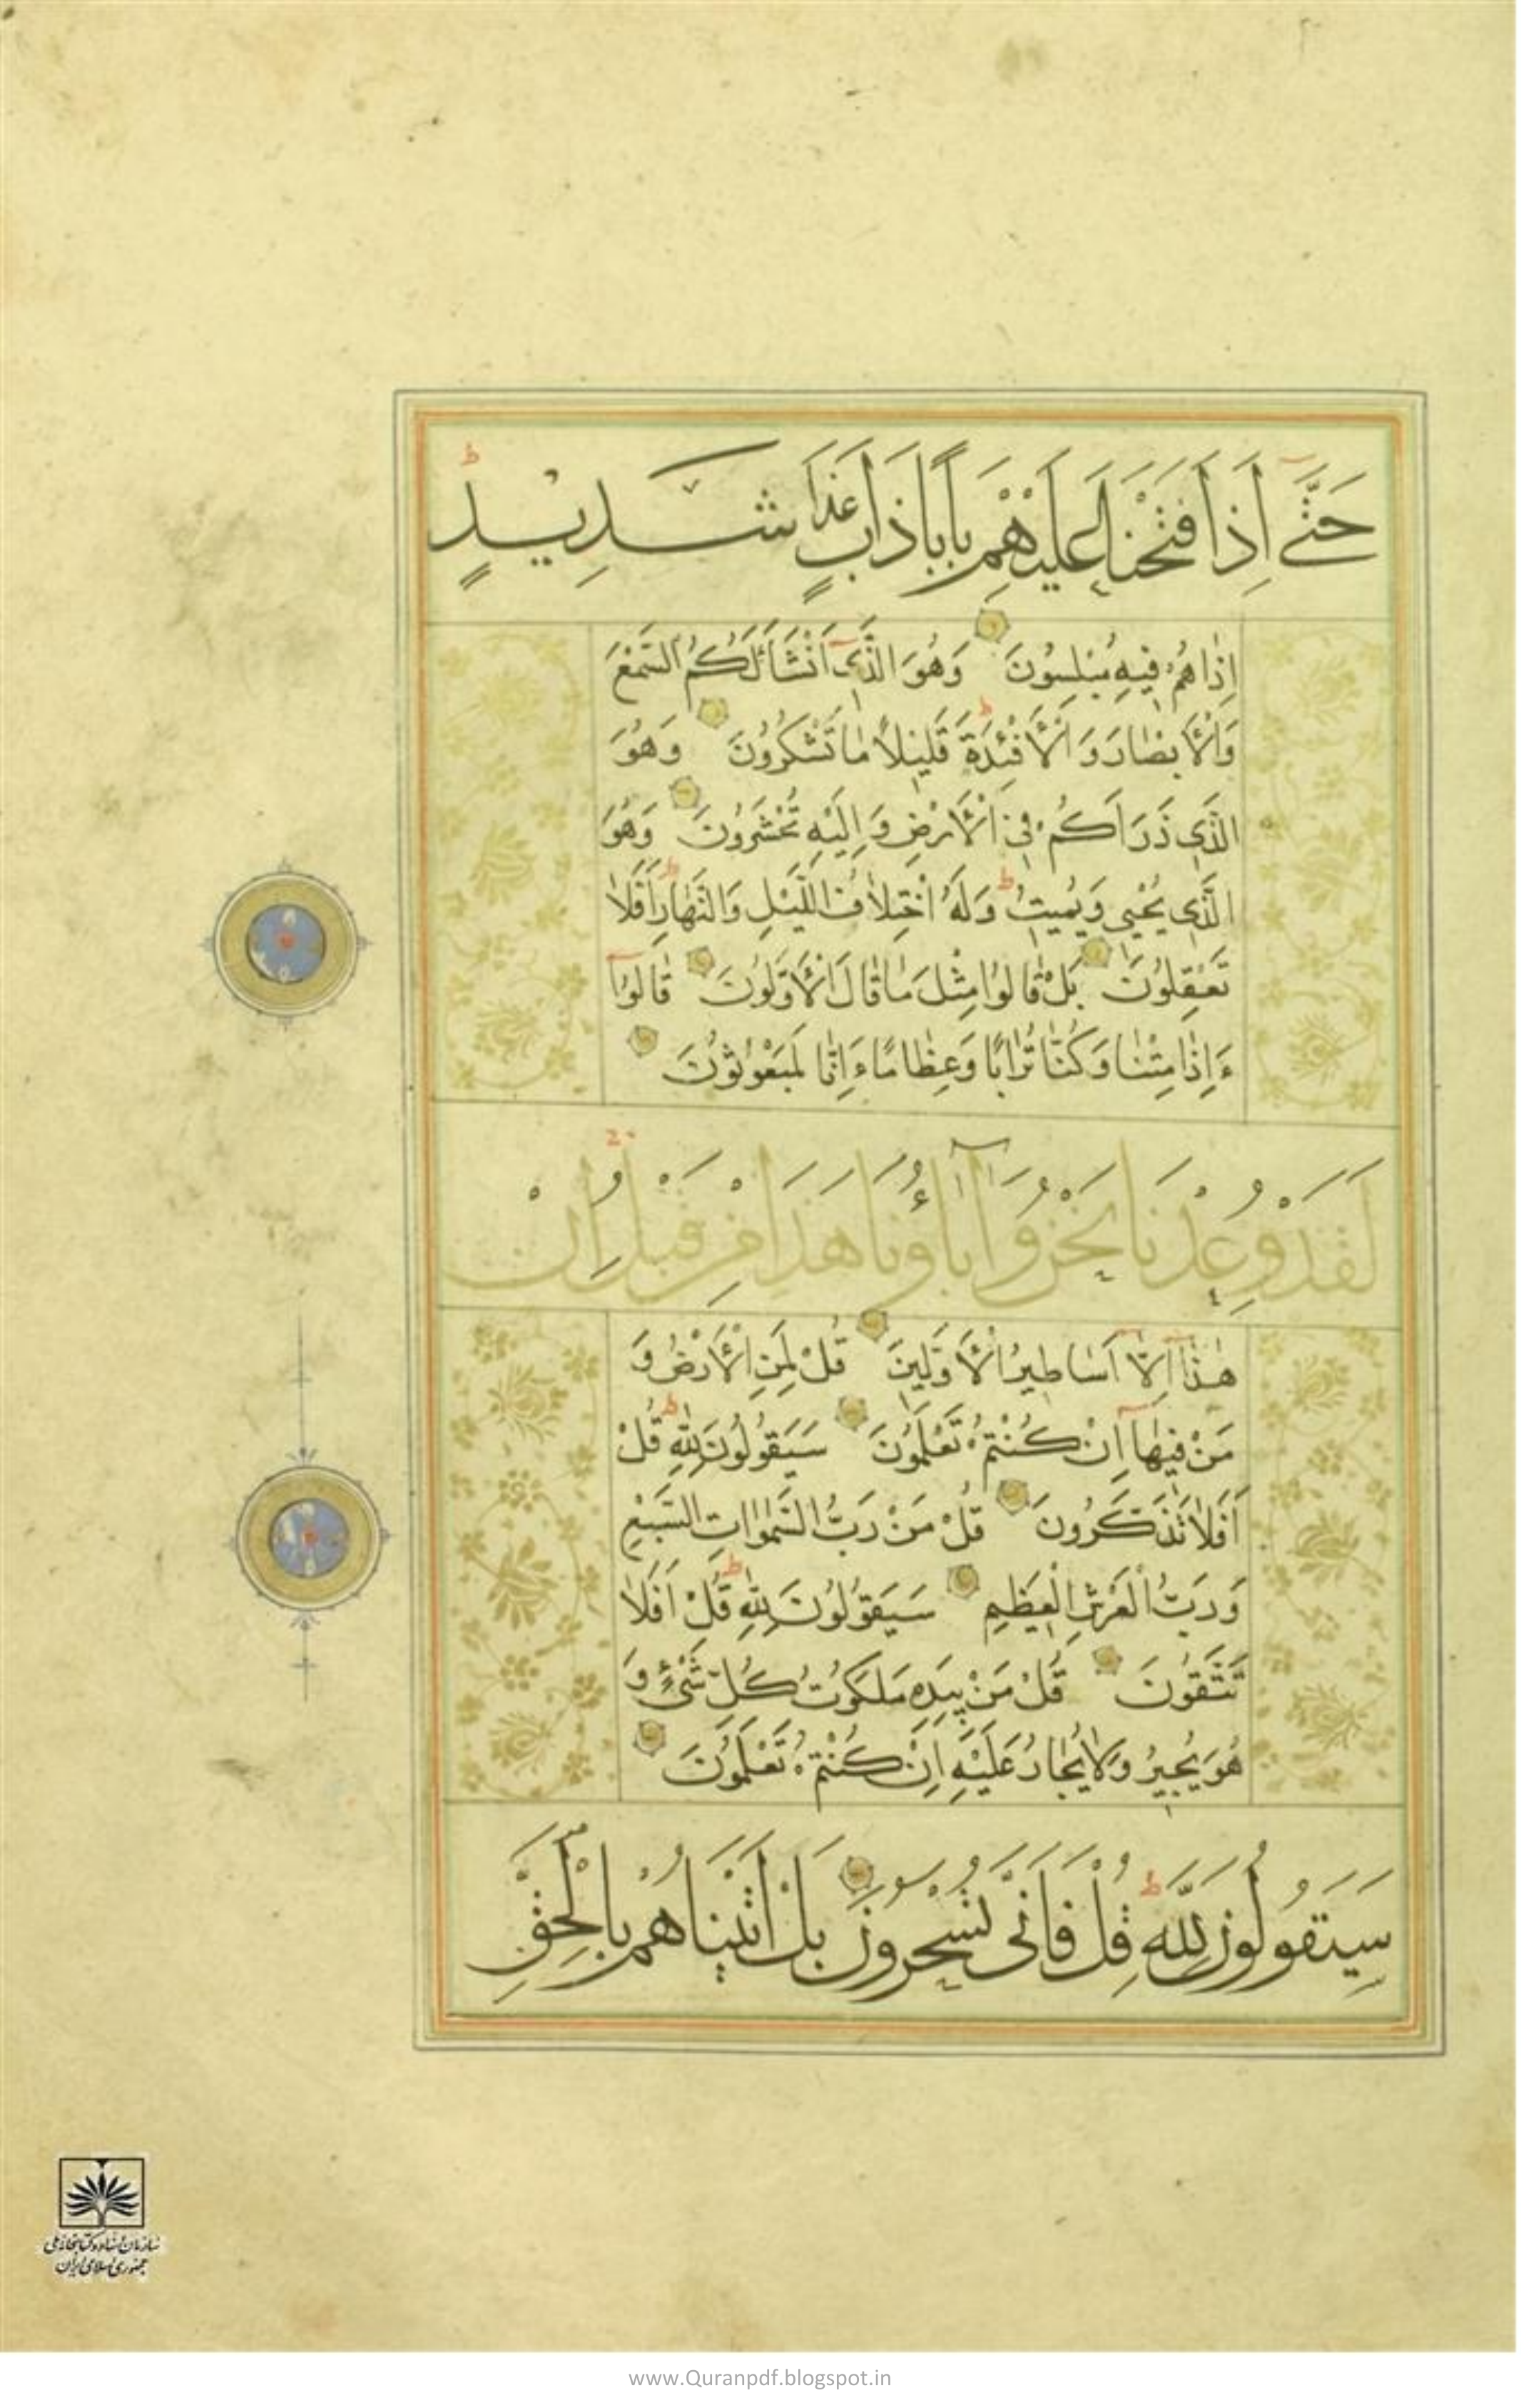 حَتَّى إِذَا فَتَحْنَا عَلَيْهِمْ بَابًا ذَا عَذَابٍ شَدِيدٍ
إِذَا هُمْ فِيهِ مُبْلِسُونَ وَهُوَ الَّذِي أَنْشَأَ لَكُمُ السَّمْعَ
وَالْأَبْصَارَ وَالْأَفْئِدَةَ قَلِيلًا مَا تَشْكُرُونَ وَهُوَ
الَّذِي ذَرَأَكُمْ فِي الْأَرْضِ وَإِلَيْهِ تُحْشَرُونَ وَهُوَ
الَّذِي يُحْيِي وَيُمِيتُ وَلَهُ اخْتِلَافُ اللَّيْلِ وَالنَّهَارِ أَفَلَا
تَعْقِلُونَ بَلْ قَالُوا مِثْلَ مَا قَالَ الْأَوَّلُونَ قَالُوا
ءَإِذَا مِتْنَا وَكُنَّا تُرَابًا وَعِظَامًا ءَإِنَّا لَمَبْعُوثُونَ
لَقَدْ وُعِدْنَا نَحْنُ وَآبَاؤُنَا هَذَا مِنْ قَبْلُ إِنْ
هٰذَا إِلَّا أَسَاطِيرُ الْأَوَّلِينَ قُلْ لِمَنِ الْأَرْضُ وَ
مَنْ فِيهَا إِنْ كُنْتُمْ تَعْلَمُونَ سَيَقُولُونَ لِلّٰهِ قُلْ
أَفَلَا تَذَكَّرُونَ قُلْ مَنْ رَبُّ السَّمٰوَاتِ السَّبْعِ
وَرَبُّ الْعَرْشِ الْعَظِيمِ سَيَقُولُونَ لِلّٰهِ قُلْ أَفَلَا
تَتَّقُونَ قُلْ مَنْ بِيَدِهِ مَلَكُوتُ كُلِّ شَيْءٍ وَ
هُوَ يُجِيرُ وَلَا يُجَارُ عَلَيْهِ إِنْ كُنْتُمْ تَعْلَمُونَ
سَيَقُولُونَ لِلَّهِ قُلْ فَأَنَّى تُسْحَرُونَ بَلْ أَتَيْنَاهُمْ بِالْحَقِّ
سازمان اسناد و کتابخانه ملی
جمهوری اسلامی ایران
www.Quranpdf.blogspot.in